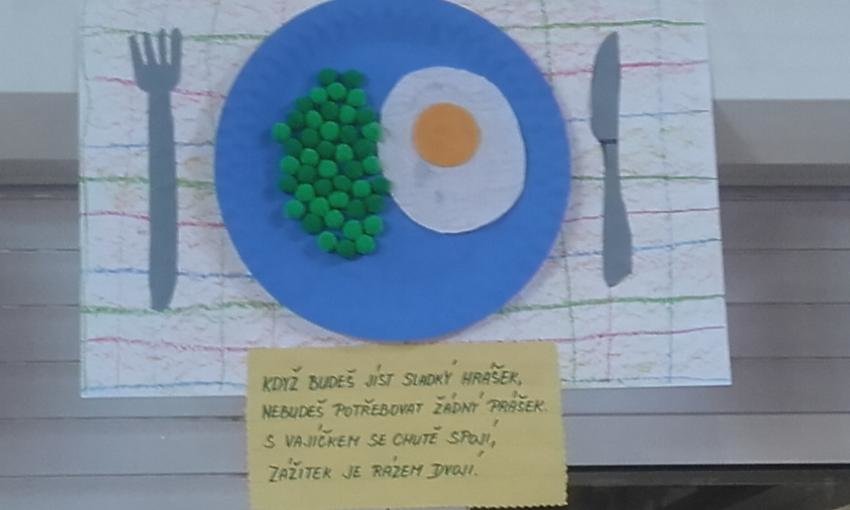 KDYŽ BUDEŠ JÍST SLADKÝ HRÁŠEK,
NEBUDEŠ POTŘEBOVAT ŽÁDNÝ PRÁŠEK.
S VAJÍČKEM SE CHUTĚ SPOJÍ,
ZÁŽITEK JE RÁZEM DVOJÍ.